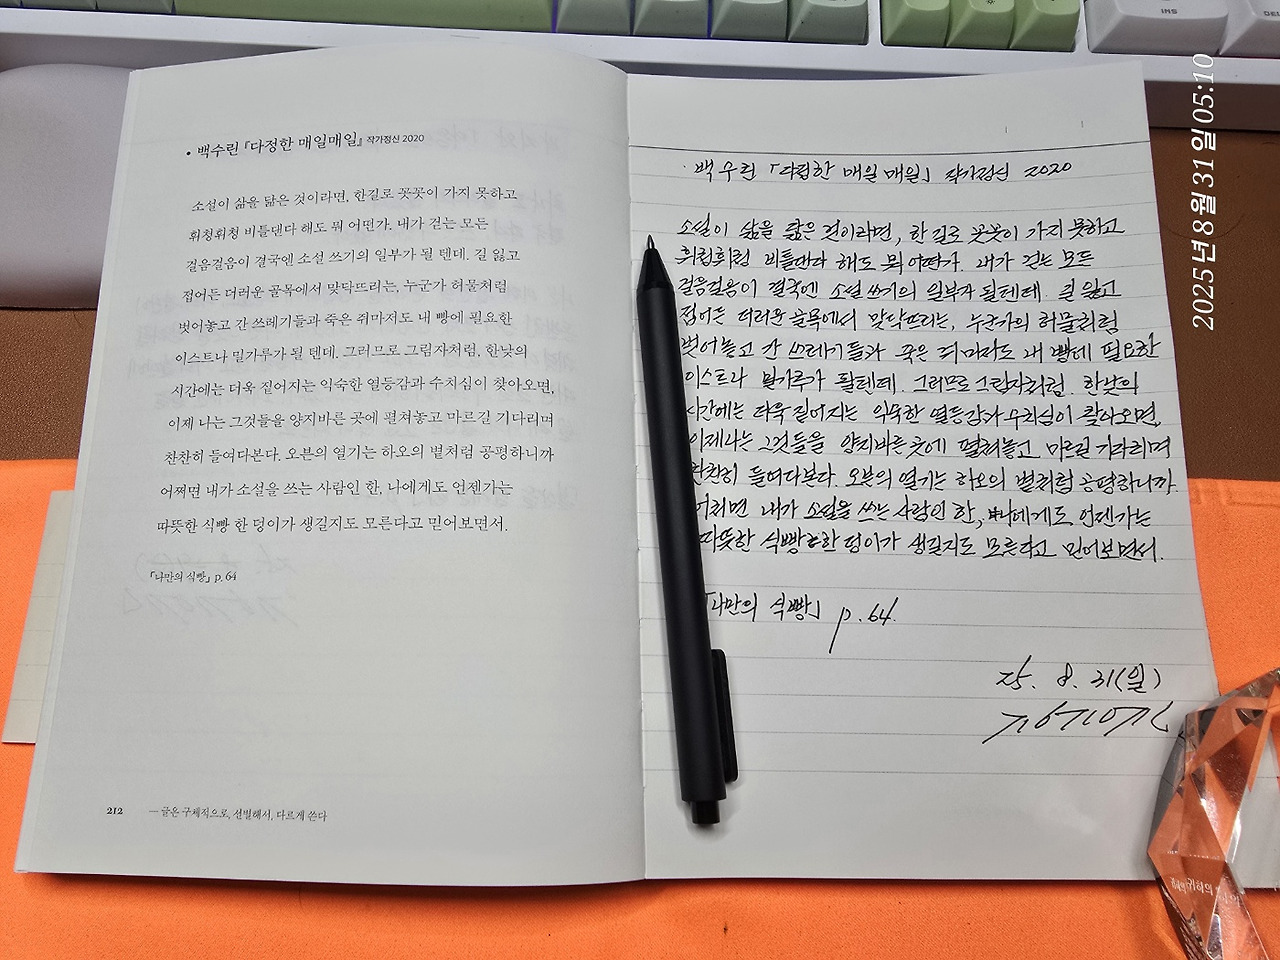 INS
2025년 8월 31일 05:10
• 백수린 『다정한 매일매일』 작가정신 2020
소설이 삶을 닮은 것이라면, 한길로 꼿꼿이 가지 못하고
휘청휘청 비틀댄다 해도 뭐 어떤가. 내가 걷는 모든
걸음걸음이 결국엔 소설 쓰기의 일부가 될 텐데. 길 잃고
접어든 더러운 골목에서 맞닥뜨리는, 누군가 허물처럼
벗어놓고 간 쓰레기들과 죽은 쥐마저도 내 빵에 필요한
이스트나 밀가루가 될 텐데. 그러므로 그림자처럼, 한낮의
시간에는 더욱 짙어지는 익숙한 열등감과 수치심이 찾아오면,
이제 나는 그것들을 양지바른 곳에 펼쳐놓고 마르길 기다리며
찬찬히 들여다본다. 오븐의 열기는 하오의 볕처럼 공평하니까
어쩌면 내가 소설을 쓰는 사람인 한, 나에게도 언젠가는
따뜻한 식빵 한 덩이가 생길지도 모른다고 믿어보면서.
「나만의 식빵」 p. 64
212 — 글은 구체적으로, 선별해서, 다르게 쓴다
· 백수린 「다정한 매일 매일」 작가정신 2020
소설이 삶을 닮은 것이라면, 한 길로 꼿꼿이 가지 못하고
휘청휘청 비틀댄다 해도 뭐 어떤가. 내가 걷는 모든
걸음걸음이 결국엔 소설 쓰기의 일부가 될텐데. 길 잃고
접어든 더러운 골목에서 맞닥뜨리는, 누군가의 허물처럼
벗어놓고 간 쓰레기들과 죽은 쥐마저도 내 빵에 필요한
이스트나 밀가루가 될텐데. 그러므로 그림자처럼. 한낮의
시간에는 더욱 짙어지는 익숙한 열등감과 수치심이 찾아오면,
이제 나는 그것들을 양지바른 곳에 펼쳐놓고 마르길 기다리며
찬찬히 들여다본다. 오븐의 열기는 하오의 볕처럼 공평하니까.
어쩌면 내가 소설을 쓰는 사람인 한, 나에게도 언젠가는
따뜻한 식빵 한 덩이가 생길지도 모른다고 믿어보면서.
「나만의 식빵」 p. 64.
25. 8. 31(일)